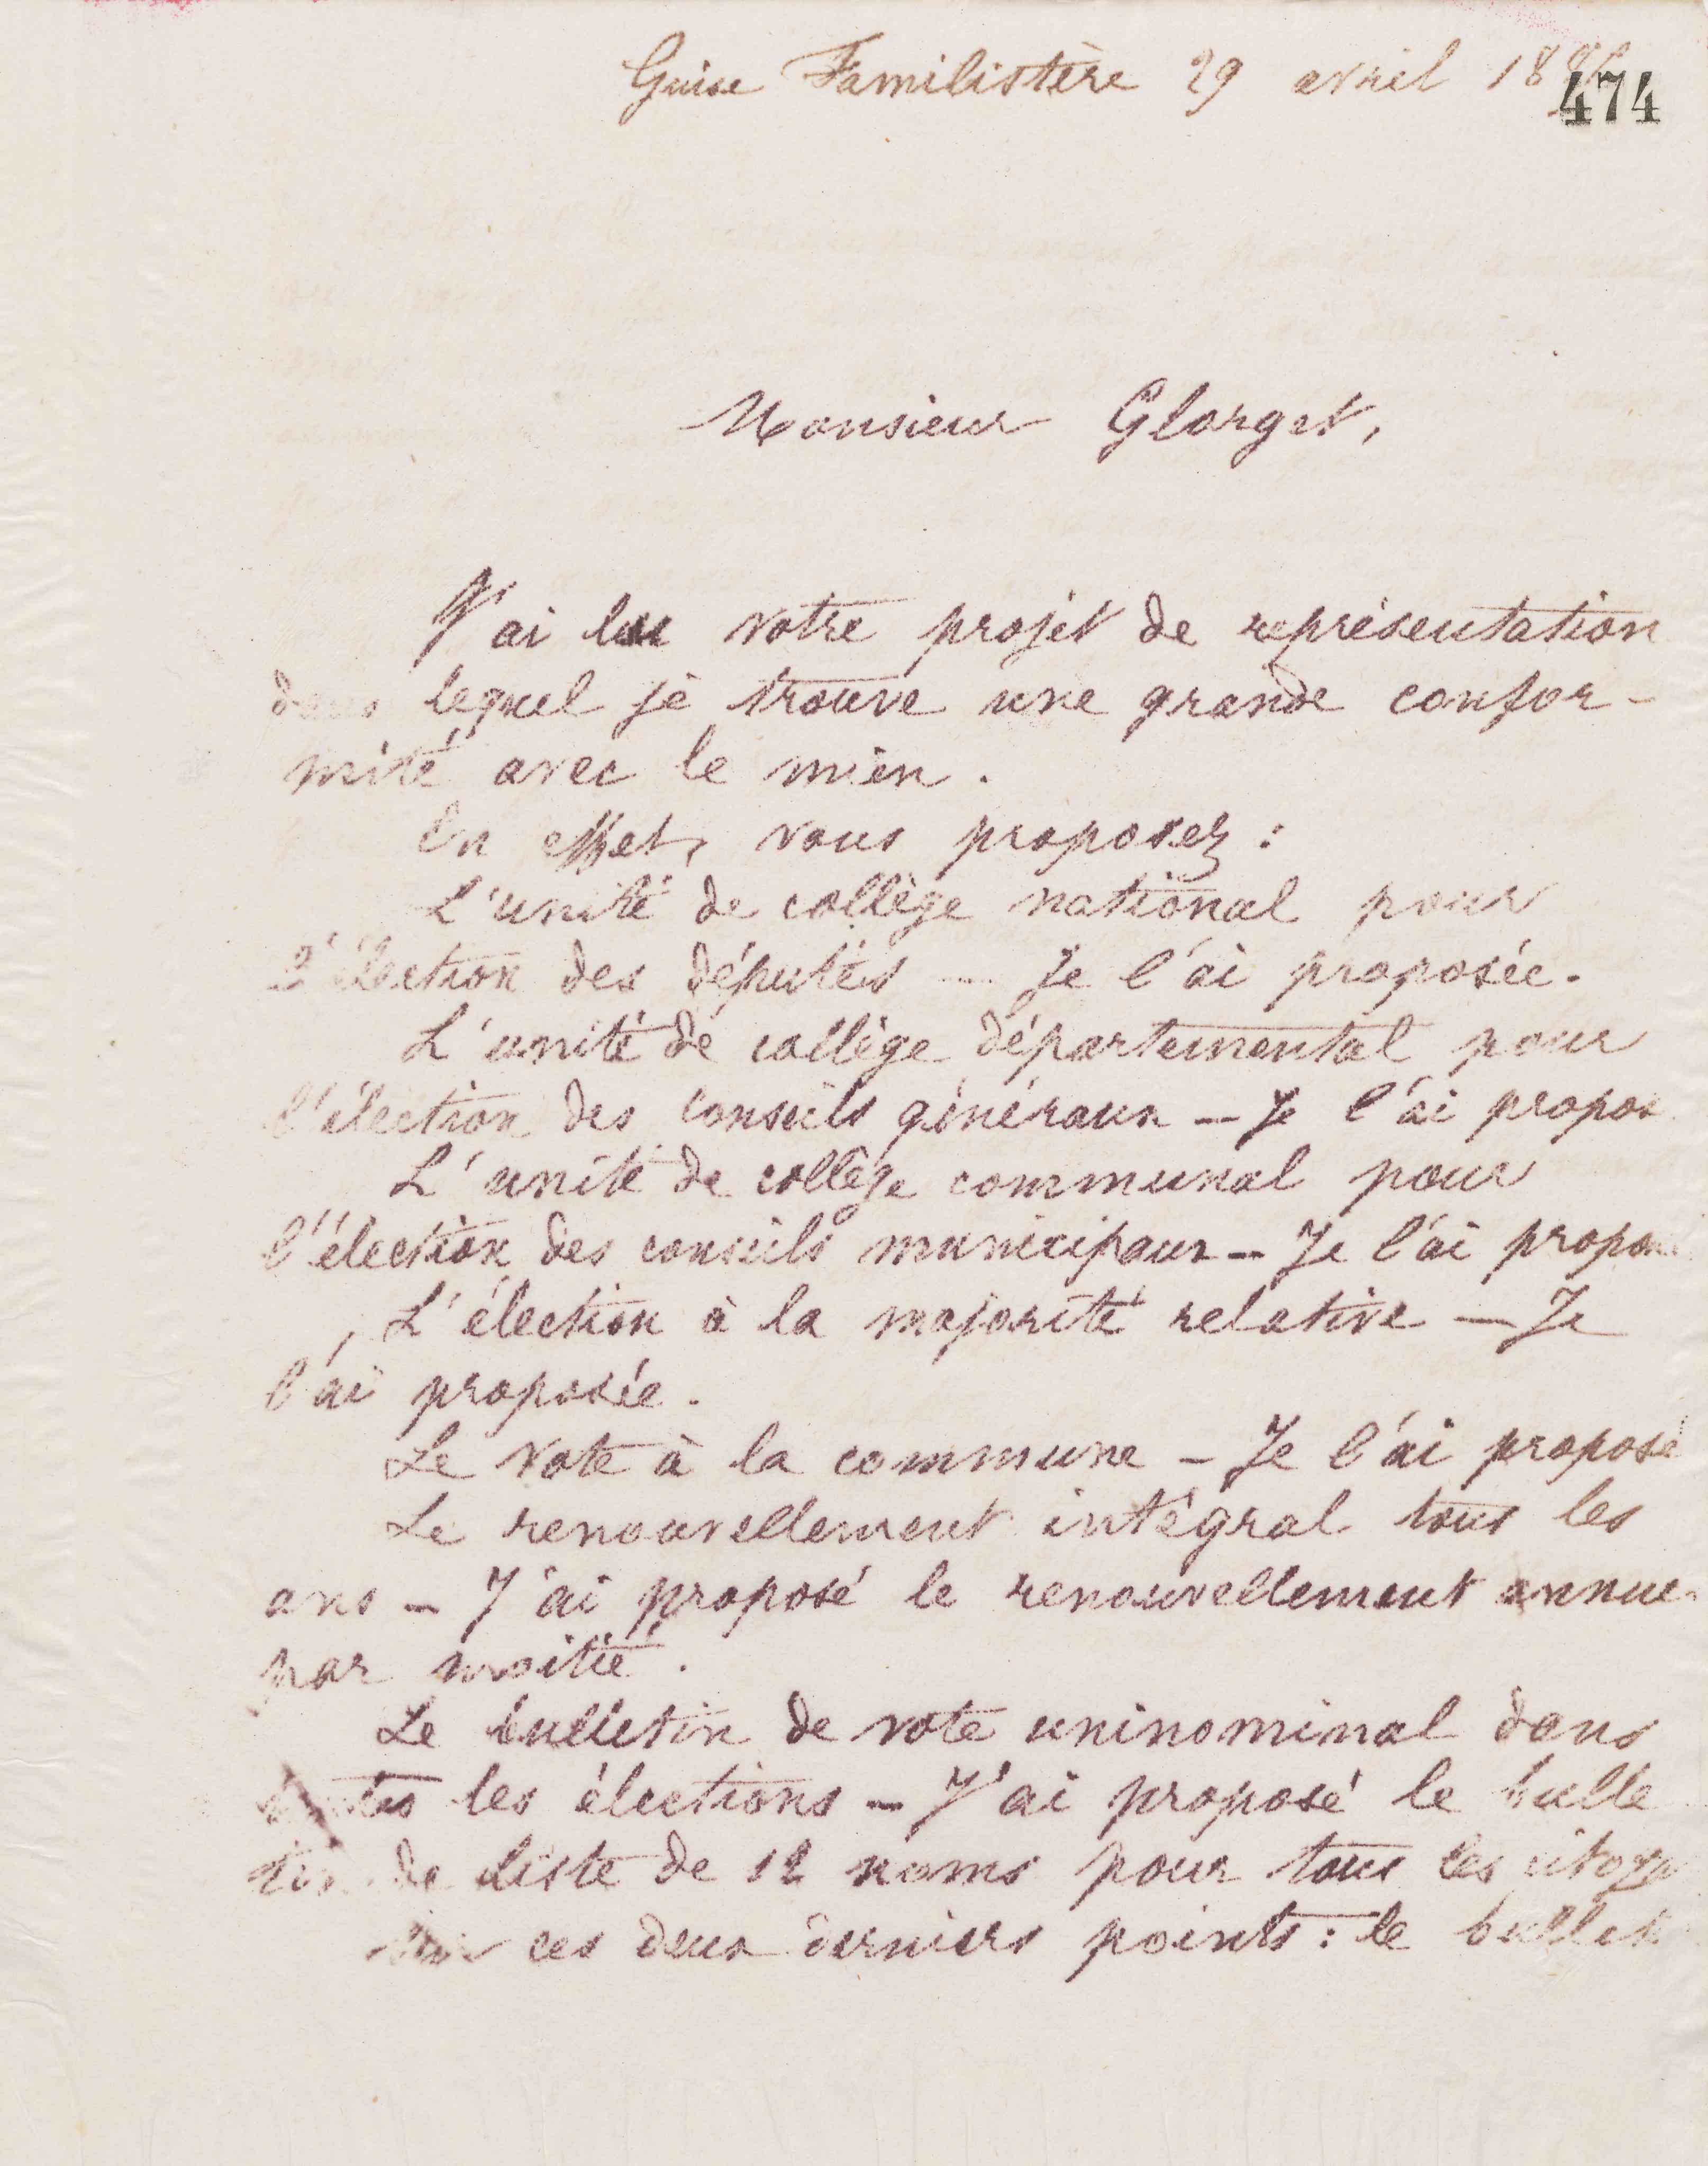 Guise Familistère 29 avril 188
474
Monsieur Glorget,
J'ai lu votre projet de représentation
dans lequel je trouve une grande confor-
mité avec le mien.
En effet, vous proposez :
L'unité de collège national pour
l'élection des députés — Je l'ai proposée.
L'unité de collège départemental pour
l'élection des conseils généraux — Je l'ai propos
L'unité de collège communal pour
l'élection des conseils municipaux — Je l'ai propos
L'élection à la majorité relative — Je
l'ai proposée.
Le vote à la commune — Je l'ai proposé
Le renouvellement intégral tous les
ans — J'ai proposé le renouvellement annue
par moitié.
Le bulletin de vote uninominal dans
toutes les élections — J'ai proposé le bulle
tin de liste de 12 noms pour tous les citoye
Sur ces deux derniers points : le bullet